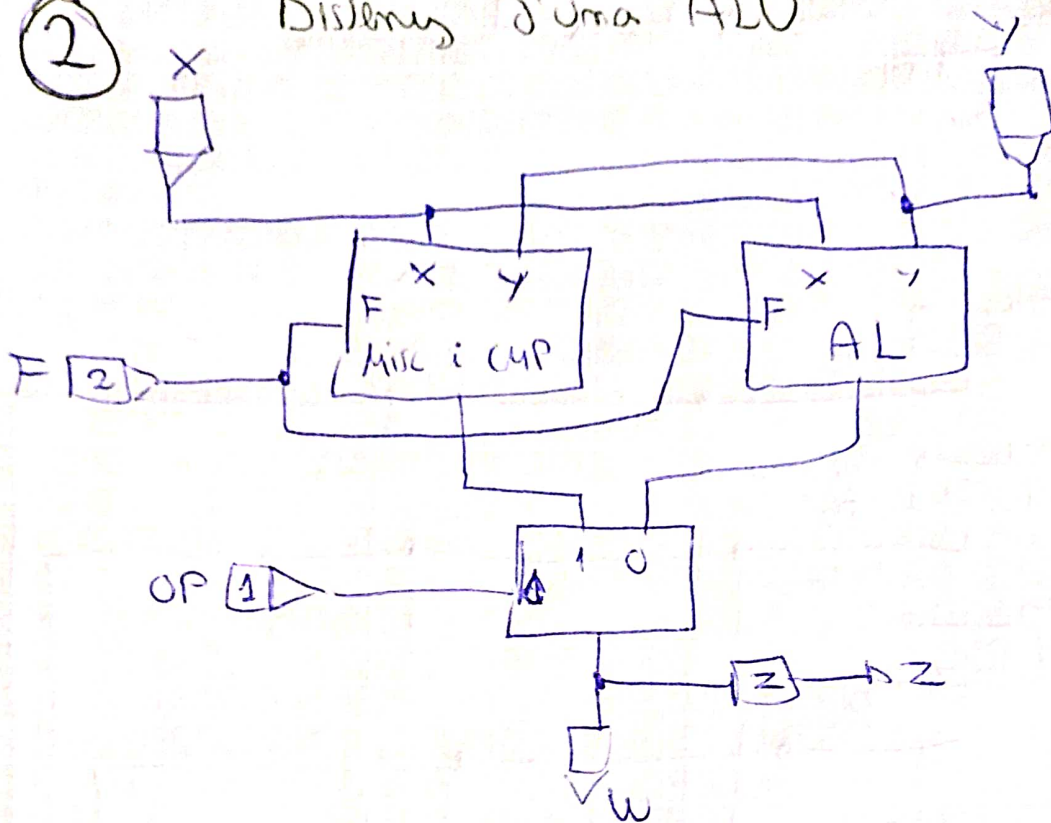 2 Disseny d'una ALU
X Y
X Y X Y
F F
Misc i CMP AL
F 2
1 0
OP 1
Z Z
W